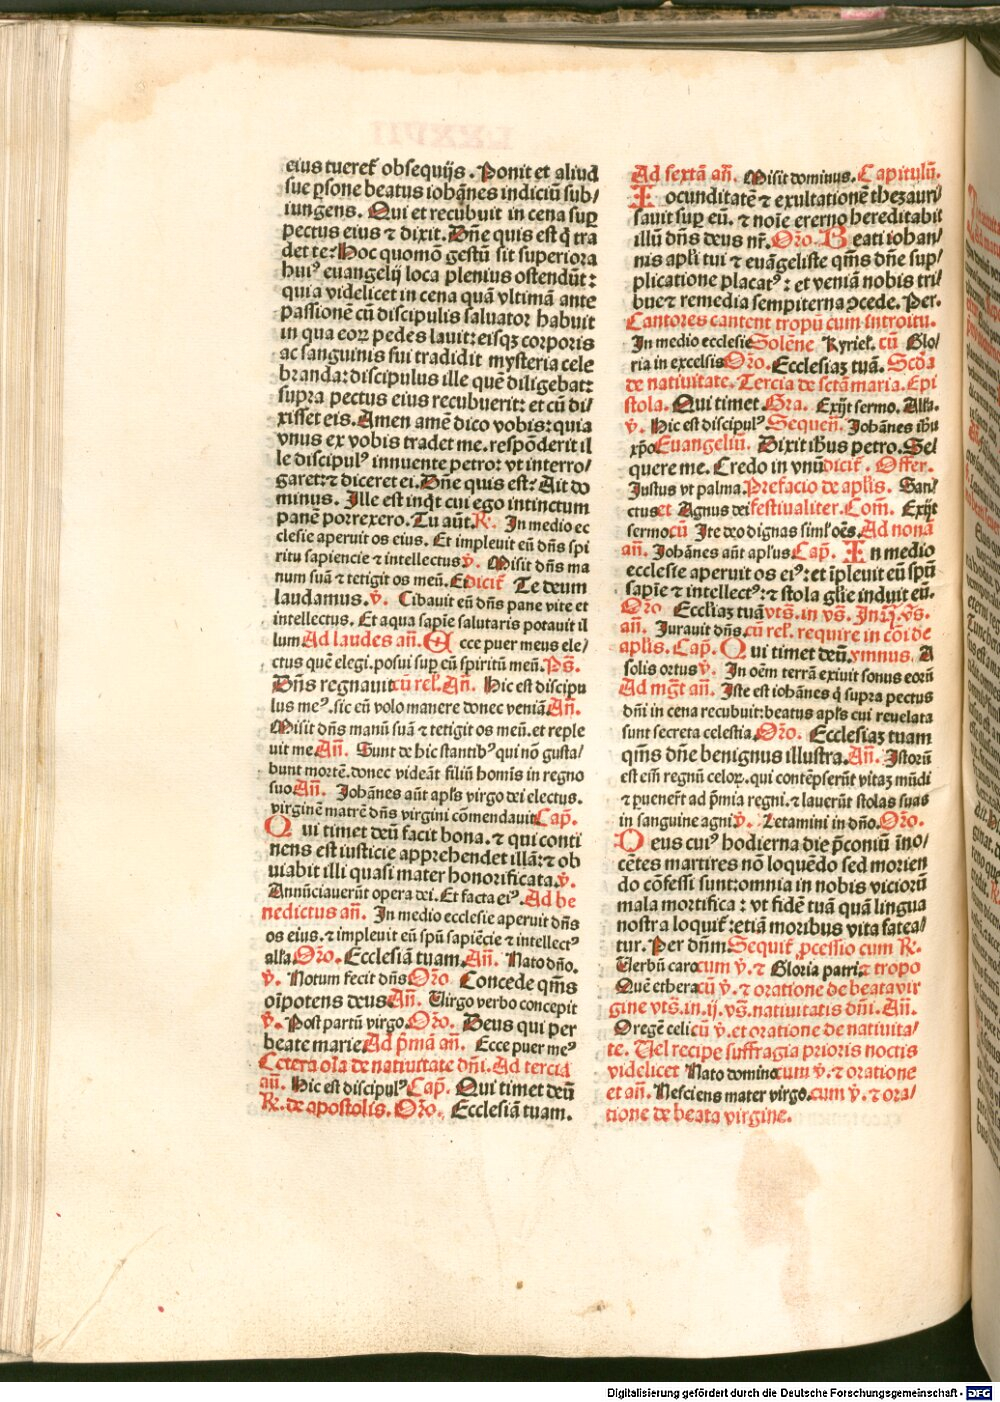 eius tueret᷑ obsequijs. Ponit et aliud
sue ꝑsone beatus iohānes indiciū sub/
iungens. Qui et recubuit in cena suꝑ
pectus eius ⁊ dixit. Dn̄e quis est q̄ tra
det te? Hoc quomō gestū sit superiora
huiꝰ euangelij loca plenius ostendūt:
quia videlicet in cena quā vltimā ante
passionē cū discipulis saluator habuit
in qua eoꝝ pedes lauit: eisqꝫ corporis
ac sanguinis sui tradidit mysteria cele
branda: discipulus ille quē diligebat:
supra pectus eius recubuerit: et cū di/
xisset eis. Amen amē dico vobis: quia
vnus ex vobis tradet me. respōderit il
le discipulꝰ innuente petro: vt interro/
garet: ⁊ diceret ei. Dn̄e quis est? Ait do
minus. Ille est inq̇t cui ego intinctum
panē porrexero. Tu aūt. R̷. In medio ec
clesie aperuit os eius. Et impleuit eū dn̄s spi
ritu sapiencie ⁊ intellectus v̷. Misit dn̄s ma
num suā ⁊ tetigit os meū. Et Dicit᷑ Te deum
laudamus. v̷. Cibauit eū dn̄s pane vite et
intellectus. Et aqua sapīe salutaris potauit il
lum Ad laudes an̄. Ecce puer meus ele/
ctus quē elegi. posui suꝑ eū spiritū meū. Ps̄.
Dn̄s regnauit cū rel᷑. An̄. Hic est discipu
lus meꝰ. sic eū volo manere donec veniā An̄.
Misit dn̄s manū suā ⁊ tetigit os meū. et reple
uit me An̄. Sunt de hic stantibꝰ qui nō gusta/
bunt mortē. donec videāt filiū homīs in regno
suo An̄. Johānes aūt apl̄s virgo dei electus.
virginē matrē dn̄s virgini cōmendauit Cap̄.
Qui timet deū facit bona. ⁊ qui conti
nens est iusticie apprehendet illā: ⁊ ob
uiabit illi quasi mater honorificata. v̷.
Annūciauerūt opera dei. Et facta eiꝰ. Ad be
nedictus an̄. In medio ecclesie aperuit dn̄s
os eius. ⁊ impleuit eū spū sapiēcie ⁊ intellectꝰ
all̄a Or̄o. Ecclesiā tuam. An̄. Nato dn̄o.
v̷. Notum fecit dn̄s Or̄o Concede qm̄s
oīpotens deus An̄. Virgo verbo concepit
v̷. Post partū virgo. Or̄o. Deus qui per
beate marie Ad p̄mā an̄. Ecce puer meꝰ
Cetera oīa de natiuitate dn̄i. Ad tercia
an̄. Hic est discipulꝰ Cap̄. Qui timet deū
R̷. de apostolis. Or̄o. Ecclesiā tuam.
Ad sextā an̄. Misit dominus. Capitulū.
Iocunditatē ⁊ exultationē thezauri
sauit suꝑ eū. ⁊ noīe eterno hereditabit
illū dn̄s deus nr̄. Or̄o. Beati iohan/
nis apl̄i tui ⁊ euāgeliste qm̄s dn̄e sup/
plicatione placatꝰ: et veniā nobis tri/
bue ⁊ remedia sempiterna ꝯcede. Per.
Cantores cantent tropū cum introitu.
In medio ecclesie Solēne Kyriel᷑. cū Glo/
ria in excelsis Or̄o. Ecclesiaꝫ tuā. Scd̄a
de natiuitate. Tercia de sctā maria. Epi
stola. Qui timet. Gra. Exijt sermo. All̄a.
v̷. Hic est discipulꝰ Sequen̄. Johānes ih̄u
xp̄o Euangeliū. Dixit ih̄us petro. Se/
quere me. Credo in vnū dicit᷑. Offer.
Justus vt palma. Prefacio de apl̄is. San/
ctus et Agnus dei festiualiter. Com̄. Exijt
sermo cū Ite deo dignas siml̓ oēs. Ad nonā
an̄. Johānes aūt apl̄us Cap̄. In medio
ecclesie aperuit os eiꝰ: et īpleuit eū spū
sapīe ⁊ intellectꝰ: ⁊ stola gl̄ie induit eū.
Or̄o Eccl̄iaꝫ tuā vts̄. in vs̄. In ij. vs̄.
an̄. Jurauit dn̄s. cū rel᷑. require in cōi de
apl̄is. Cap̄. Qui timet deū. ymnus. A
solis ortus v̷. In oēm terrā exiuit sonus eorū
Ad mg̅t an̄. Iste est iohānes q̇ supra pectus
dn̄i in cena recubuit: beatus apl̄s cui reuelata
sunt secreta celestia. Or̄o. Ecclesiaꝫ tuam
qm̄s dn̄e benignus illustra. An̄. Istorū
est eīm regnū celoꝝ. qui contēpserūt vitaꝫ mūdi
⁊ ꝑuenert̄ ad p̄mia regni. ⁊ lauerūt stolas suas
in sanguine agni v̷. Letamini in dn̄o. Or̄o.
Deus cuiꝰ hodierna die p̄coniū īno/
cētes martires nō loquēdo sed morien
do cōfessi sunt: omnia in nobis viciorū
mala mortifica: vt fidē tuā quā lingua
nostra loquit᷑: etiā moribus vita fatea/
tur. Per dn̄m Sequit᷑ ꝓcessio cum R̷.
Verbū caro cum v̷. ⁊ Gloria patri ⁊ tropo
Quē ethera cū v̷. ⁊ oratione de beata vir
gine vts̄. in. ij. vs̄. natiuitatis dn̄i. An̄.
O regē celi cū v̷. et oratione de natiuita/
te. Vel recipe suffragia prioris noctis
videlicet Nato domino cum v̷. ⁊ oratione
et an̄. Nesciens mater virgo. cum v̷. ⁊ ora/
tione de beata virgine.
Digitalisierung gefördert durch die Deutsche Forschungsgemeinschaft - DFG